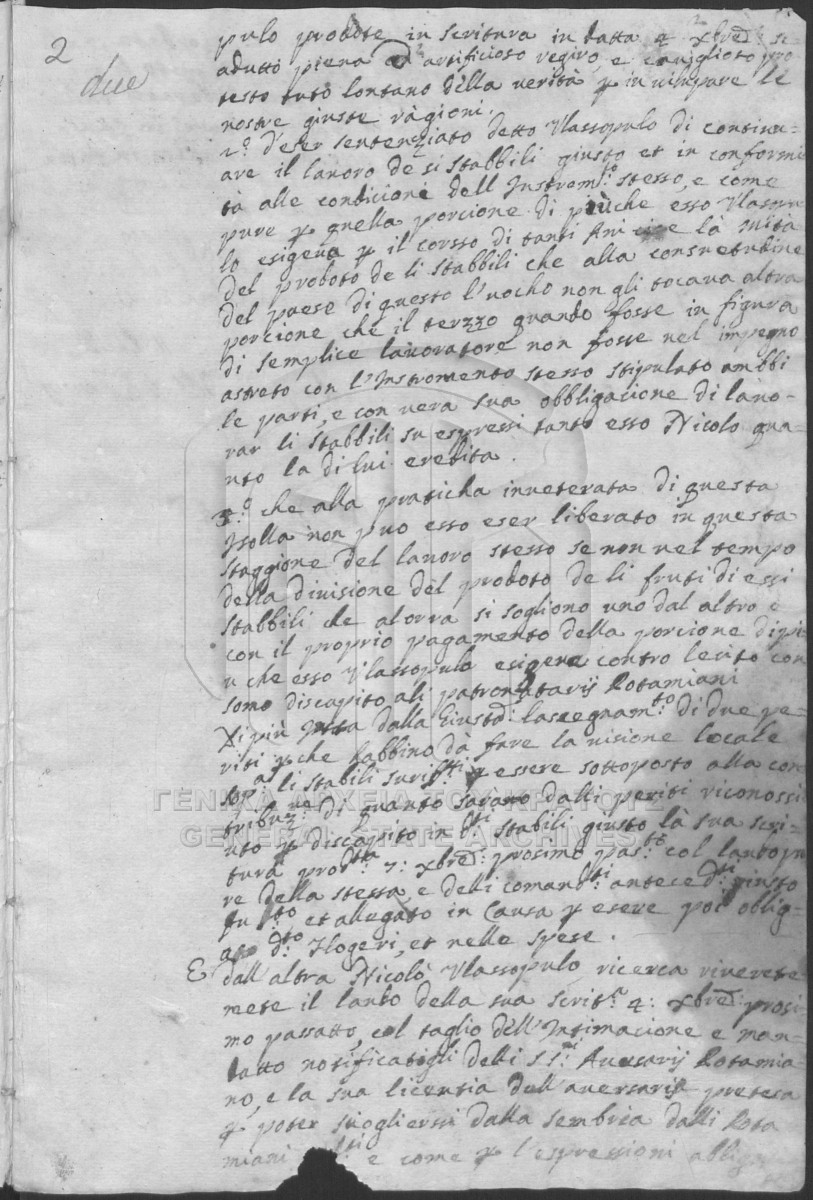 2
due
pulo prodote in scritura in datta 4 Xbre
adutto piena d'artificioso regiro, e
testo tuto lontano della verità p inciampare le
nostre giuste ragioni.
2.º d'eser sentenziato detto Vlassopulo di continu=
are il lavoro de si stabbili giusto et in conformi
tà alle condicioni dell Instromto stesso, e come
pure p quella porcione di più che esso Vlassopu
lo esigeva p il corsso di tanti Ani cioe là mità
del prodoto de li stabbili che alla consuetudine
del paese di questo l'uocho non gli tocava altra
porcione che il terzzo quando fosse in figura
di semplice lavoratore non fosse nel impegno
astreto con l'Instromento stesso stipulato ambbi
le parti, e con vera sua obbligacione di lavo-
rar li stabbili su espressi tanto esso Nicolo qua-
nto la di lui eredita.
3.º che alla praticha inveterata di questa
Isolla non puo esso eser liberato in questa
staggione del lavoro stesso se non nel tempo
della divisione del prodoto de li fruti di essi
stabbili che alorra si sogliono uno dal altro e
con il proprio pagamento della porcione di pi
u che esso Vlassopulo esigeva contro lecito con
somo discapito ali patron Rotamiani
di due pe-
riti p che habbino dà fare la visione locale
sop.a li stabili p essere sottoposto alla con
di quanto sarano dalli periti riconossi
uto p discapito in d.ti stabili giusto là sua scri-
tura prod.ta 7: Xbre: prosimo pas.to col
re della stessa, e delli comand.ti anteced.ti giusto
et allegato in Causa p esere poi oblig-
ato d.to Ilogeri, et nelle spese.
E dall'altra Nicolò Vlassopulo ricerca riverete
mete il laudo della sua scrit.a 4: Xbre: prosi-
mo passatto, col taglio dell'Intimacione e man-
datto notificatogli delli SS.ri Aversarij Rotamia-
no, e la sua licentia dell'aversaria pretesa
p poter sciogliersi dalla sembria dalli Rota
miani e come p l'espressioni
ΓΕΝΙΚΑ ΑΡΧΕΙΑ ΤΟΥ ΚΡΑΤΟΥΣ
GENERAL STATE ARCHIVES